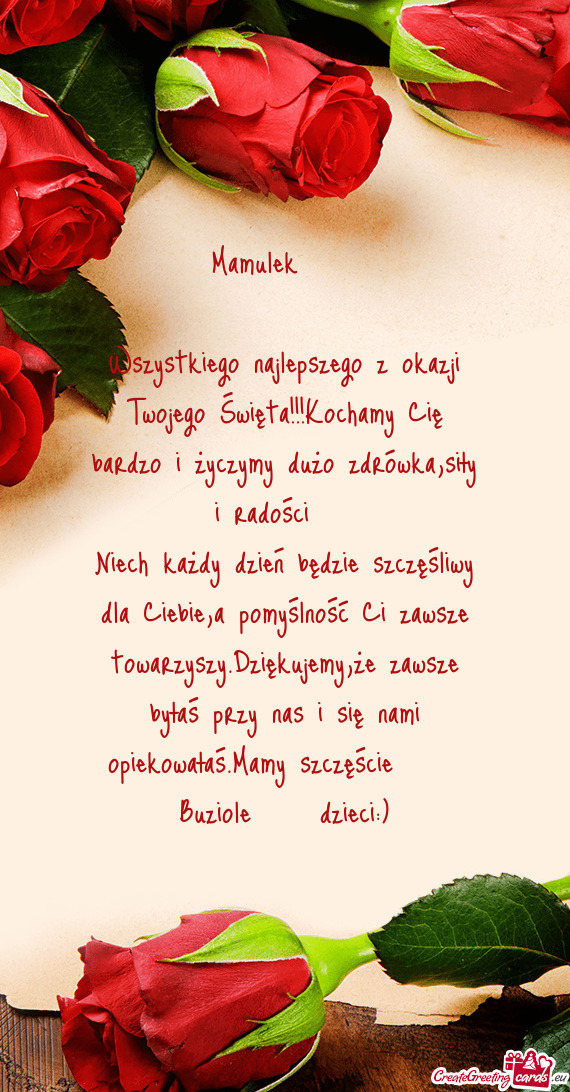 Mamulek
Wszystkiego najlepszego z okazji
Twojego Święta!!!Kochamy Cię
bardzo i życzymy dużo zdrówka,siły
i radości
Niech każdy dzień będzie szczęśliwy
dla Ciebie,a pomyślność Ci zawsze
towarzyszy.Dziękujemy,że zawsze
byłaś przy nas i się nami
opiekowałaś.Mamy szczęście
Buziole dzieci:)
CreateGreetingcards.eu